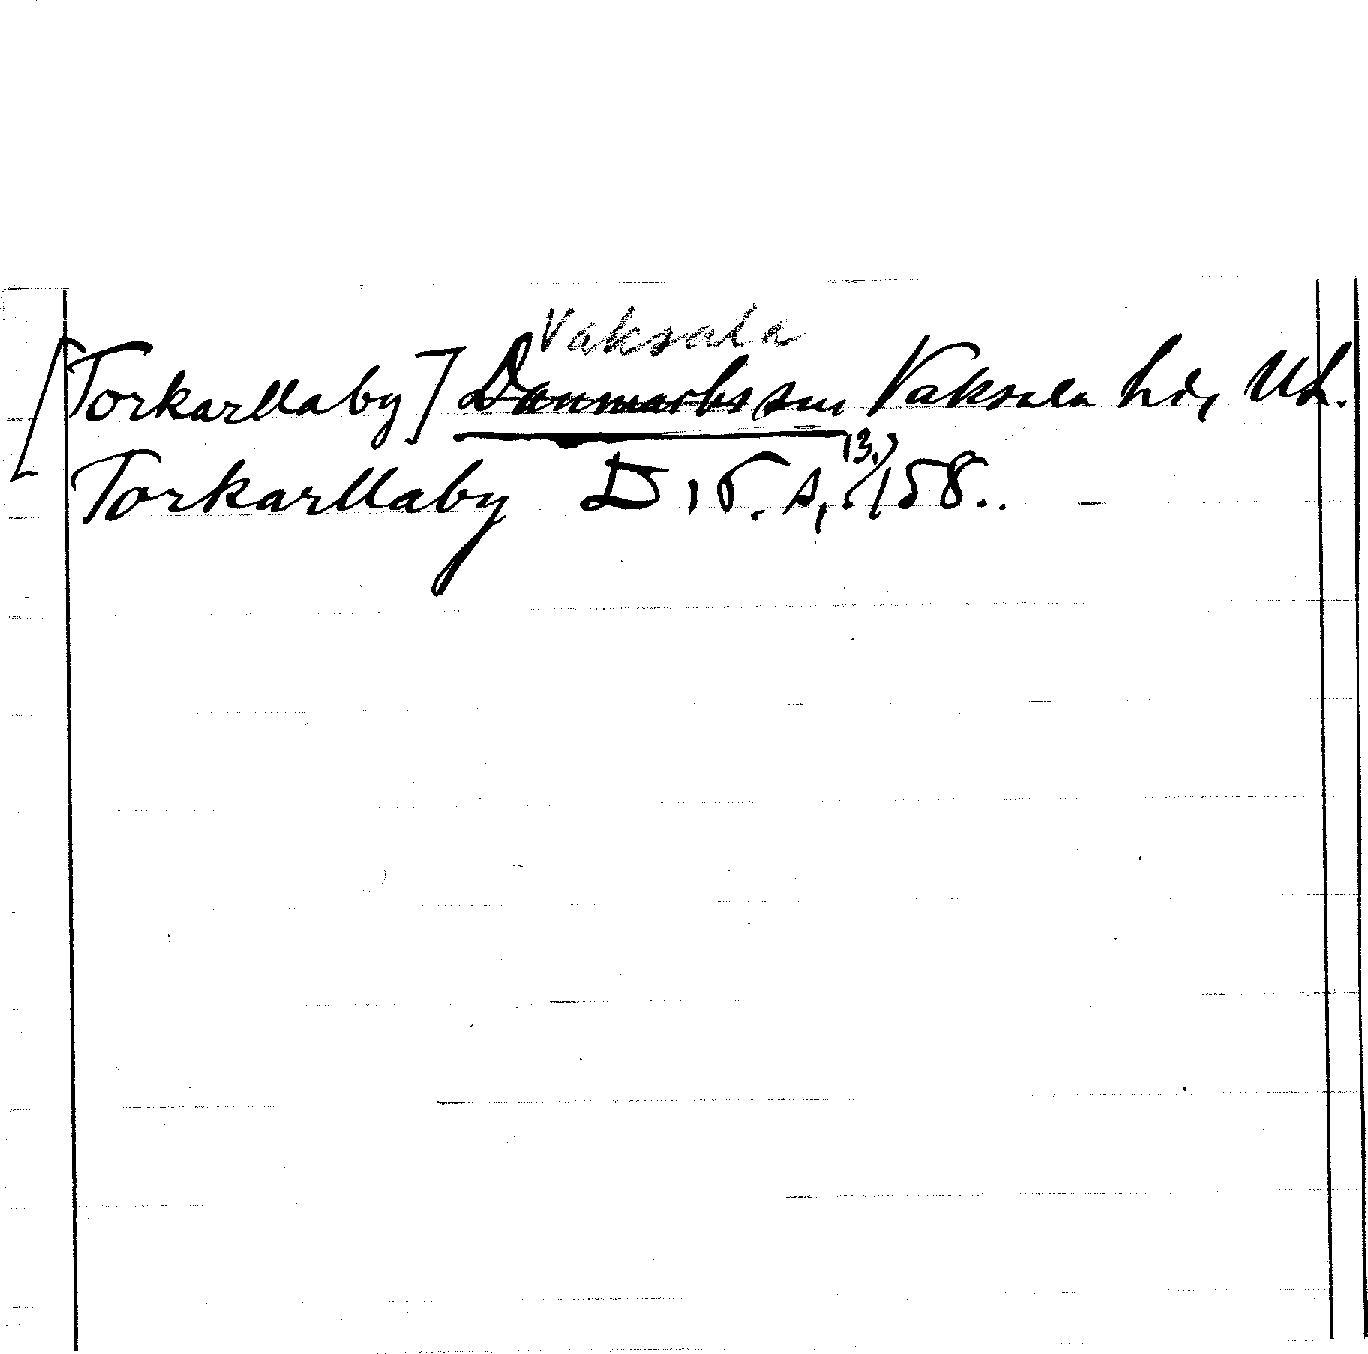 Vaksala
[Torkarllaby] Danmarks sn Vaksala hd, Upl.
Torkarllaby D 15. s, 158.. –